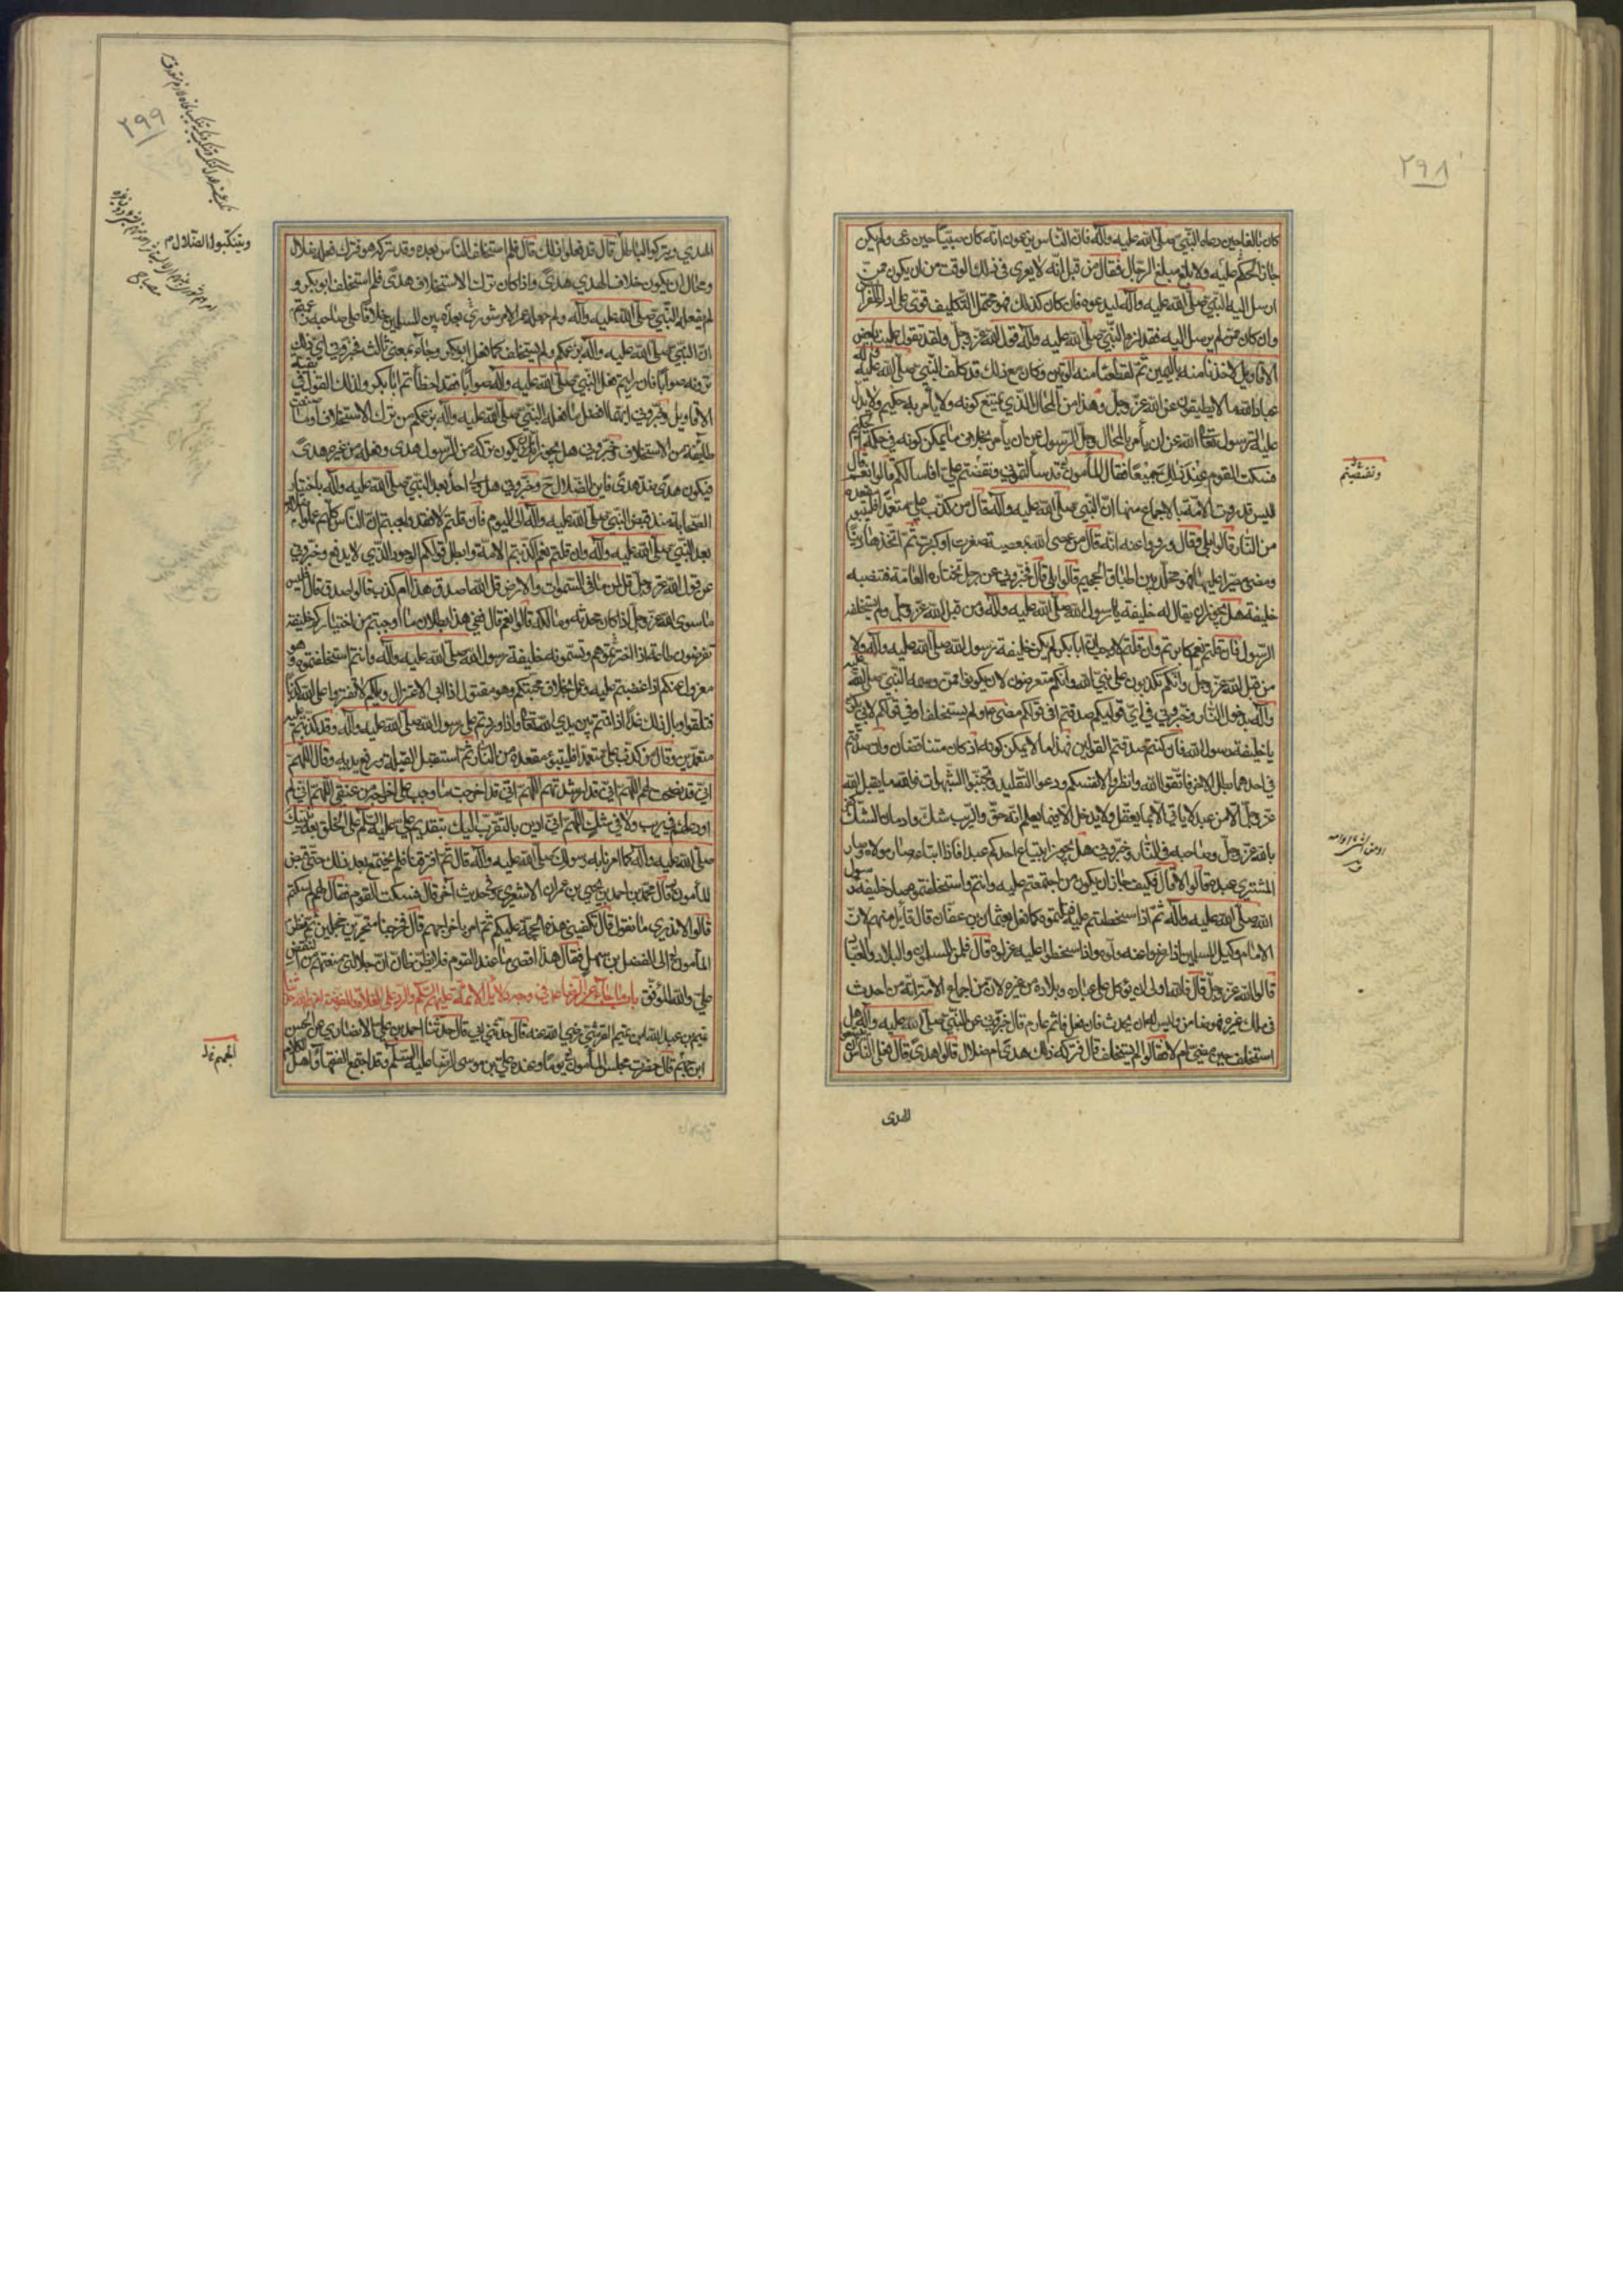 ٢٩٨
كان بالغا حين دعاه النبي صلى الله عليه وآله فان الناس يزعمون انه كان صبيا حين دعى ولم يكن
جاز الحكم عليه ولا بلغ مبلغ الرجال فقال من قبل انه لا يعرى في ذلك الوقت من ان يكون ممن
ارسل اليه النبي صلى الله عليه وآله ليدعوه فان كان كذلك فهو محتمل التكليف قوي على اداء الفرايض
وان كان ممن لم يرسل اليه فقد لزم النبي صلى الله عليه وآله قول الله عز وجل ولو تقول علينا بعض
الاقاويل لاخذنا منه باليمين ثم لقطعنا منه الوتين وكان مع ذلك قد كلف النبي صلى الله عليه وآله
عباد الله ما لا يطيقون عن الله عز وجل وهذا من المحال الذي يمتنع كونه ولا يأمر به حكيم ولا يدل
عليه الرسول تعالى الله عن ان يأمر بالمحال وجل الرسول عن ان يأمر بخلاف ما يمكن كونه في حكمة الحكيم
فسكت القوم عند ذلك جميعا فقال المأمون قد سألتموني ونقضتم علي افاسألكم قالوا نعم قال
اليس قد روت الامة بالاجماع منها ان النبي صلى الله عليه وآله قال من كذب علي متعمدا فليتبوء مقعده
من النار قالوا بلى فقال ورووا عنه انه قال من عصى الله بمعصية صغرت او كبرت ثم اتخذها دينا
ومضى مصرا عليها فهو مخلد بين اطباق الجحيم قالوا بلى قال فخبروني عن رجل تختاره العامة فتنصبه
خليفة هل يجوز ان يقال له خليفة رسول الله صلى الله عليه وآله ومن قبل الله عز وجل ولم يستخلفه
الرسول فان قلتم نعم كابرتم وان قلتم لا وجب ان ابا بكر لم يكن خليفة رسول الله صلى الله عليه وآله ولا
من قبل الله عز وجل وانكم تكذبون على نبي الله وانكم متعرضون لان يكونوا ممن وسمه النبي صلى الله عليه
وآله بدخول النار وخبروني في اي قوليكم صدقتم افي قولكم مضى ع ولم يستخلف او في قولكم لابي بكر
يا خليفة رسول الله فان كنتم صدقتم القولين فهذا ما لا يمكن كونه اذ كان متناقضا وان صدقتم
في احدهما بطل الاخر فاتقوا الله وانظروا لانفسكم ودعوا التقليد وتجنبوا الشبهات فوالله ما يقبل الله
عز وجل الا من عبد لا يأتي الا بما يعقل ولا يدخل الا فيما يعلم انه حق والريب شك وادمان الشك كفر
بالله عز وجل وصاحبه في النار وخبروني هل يجوز ابتياع احدكم عبدا فاذا ابتاعه صار مولاه وصار
المشتري عبده قالوا لا قال فكيف جاز ان يكون من اجتمعتم عليه وانتم واستخلفتموه صار خليفة رسول
الله صلى الله عليه وآله ثم اذا سخطتم عليه قتلتموه كما فعل بعثمان بن عفان قال قائل منهم لان
الامام وكيل المسلمين اذا رضوا عنه ولوه واذا سخطوا عليه عزلوه قال فلمن المسلمون والبلاد والعباد
قالوا لله عز وجل قال فالله اولى ان يوكل على عباده وبلاده من غيره لان من اجماع الامة انه من احدث
في ملك غيره فهو ضامن وليس له ان يحدث فان فعل فاثم غارم قال خبروني عن النبي صلى الله عليه وآله هل
استخلف حين مضى ام لا فقالوا لم يستخلف قال فتركه ذلك هدى ام ضلال قالوا هدى قال فعلى الناس ان يتبعوا
ونقضتم
الهدى
٢٩٩
الهدي ويتركوا الباطل قال قد فعلوا ذلك قال فلم استخلف الناس بعده وقد تركه هو فترك فعله ضلال
ومحال ان يكون خلاف الهدي هدى واذا كان ترك الاستخلاف هدى فلم استخلف ابو بكر و
لم يفعله النبي صلى الله عليه وآله ولم جعل عمر الامر شورى بعده بين المسلمين خلافا على صاحبه زعمتم
ان النبي صلى الله عليه وآله بزعمكم لم يستخلف كما فعل ابو بكر وجاء بمعنى ثالث فخبروني اي ذلك
ترونه صوابا فان رأيتم فعل النبي صلى الله عليه وآله صوابا فقد اخطأتم ابا بكر وكذلك القول في بقية
الاقاويل وخبروني ايهما افضل ما فعله النبي صلى الله عليه وآله بزعمكم من ترك الاستخلاف او ما صنعت
طائفة من الاستخلاف وخبروني هل يجوز ان يكون تركه من الرسول هدى وفعله من غيره هدى
فيكون هدى ضد هدى فاين الضلال ح وخبروني هل ولي احد بعد النبي صلى الله عليه وآله باختيار
الصحابة منذ قبض النبي صلى الله عليه وآله الى اليوم فان قلتم لا فقد اوجبتم ان الناس كلهم عملوا ضلالة
بعد النبي صلى الله عليه وآله وان قلتم نعم كذبتم الامة وابطل قولكم الوجود الذي لا يدفع وخبروني
عن قول الله عز وجل قل لمن ما في السموات والارض قل لله اصدق هذا ام كذب قالوا صدق قال افليس
ما سوى الله عز وجل اذ كان محدثه ومالكه قالوا نعم قال ففي هذا بطلان ما اوجبتم من اختياركم خليفة
تفترضون طاعته اذا اخترتموهم وتسمونه خليفة رسول الله صلى الله عليه وآله وانتم استخلفتموه وهو
معزول عنكم اذا غضبتم عليه وعمل بخلاف محبتكم وهو مقتول اذا ابى الاعتزال ويلكم لا تفتروا على الله كذبا
فتلقوا وبال ذلك غدا اذا قمتم بين يدي الله تعالى واذا وردتم على رسول الله صلى الله عليه وآله وقد كذبتم عليه
متعمدين وقال من كذب علي متعمدا فليتبوء مقعده من النار ثم استقبل القبلة ورفع يديه وقال اللهم
اني قد نصحت لهم اللهم اني قد ارشدتهم اللهم اني قد اخرجت ما وجب علي اخراجه من عنقي اللهم اني لم
ادعهم في ريب ولا في شك اللهم اني ادين بالتقرب اليك بتقديم علي عليه السلم على الخلق بعد نبيك
صلى الله عليه وآله كما امرنا به رسولك صلى الله عليه وآله قال ثم افترقنا فلم نجتمع بعد ذلك حتى قبض
المأمون قال محمد بن احمد بن يحيى بن عمران الاشعري وفي حديث آخر قال فسكت القوم فقال لهم لم سكتم
قالوا لا ندري ما نقول قال تكفيني هذه الحجة عليكم ثم امر باخراجهم قال فخرجنا متحيرين خجلين ثم نظر
المأمون الى الفضل بن سهل فقال هذا اقصى ما عند القوم فلا يظن ظان ان جلالتي منعتهم من النقض
علي والله الموفق باب ما جاء عن الرضا ع في وجه دلايل الائمة عليهم السلم والرد على الغلاة والمفوضة لعنهم الله حدثنا
تميم بن عبد الله بن تميم القرشي رضي الله عنه قال حدثني ابي قال حدثنا احمد بن علي الانصاري عن الحسن
ابن الجهم قال حضرت مجلس المأمون يوما وعنده علي بن موسى الرضا عليه السلم وقد اجتمع الفقهاء واهل الكلام
ويتنكبوا الضلال